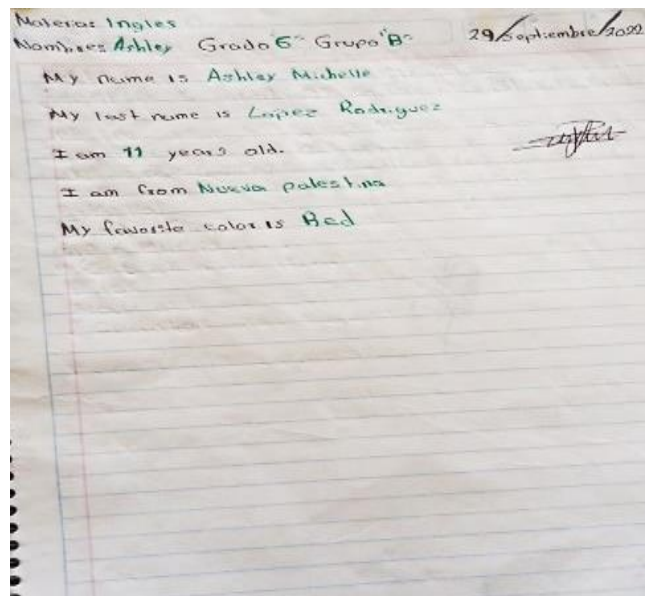 Materia: Ingles
Nombre: Ashley Grado 6° Grupo "B" 29/Septiembre/2022
My name is Ashley Michelle
My last name is Lopez Rodriguez
I am 11 years old.
I am from Nueva palestina
My favorite color is Red